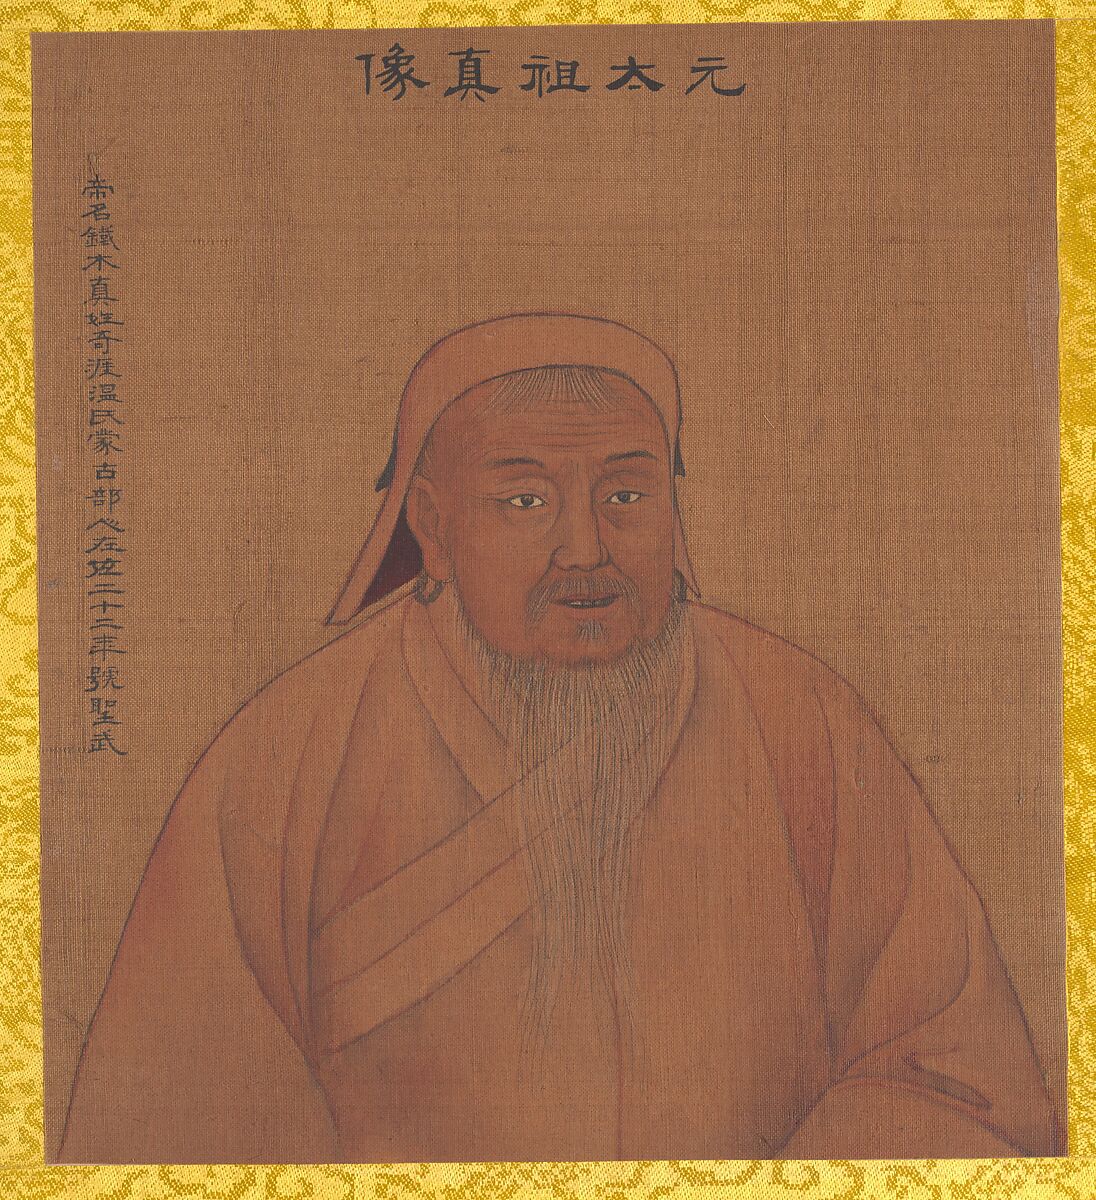 元太祖真像
帝名鐵木真姓奇渥温氏蒙古部人在位二十二年號聖武